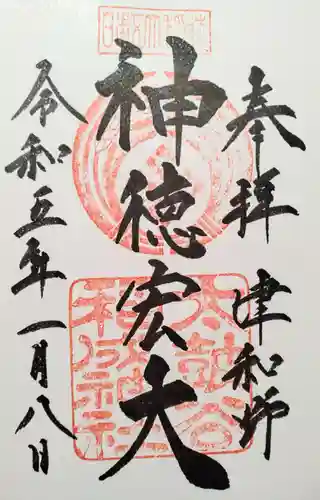 奉拝 津和野
神徳宏大
令和五年一月八日
太皷谷稲成神社